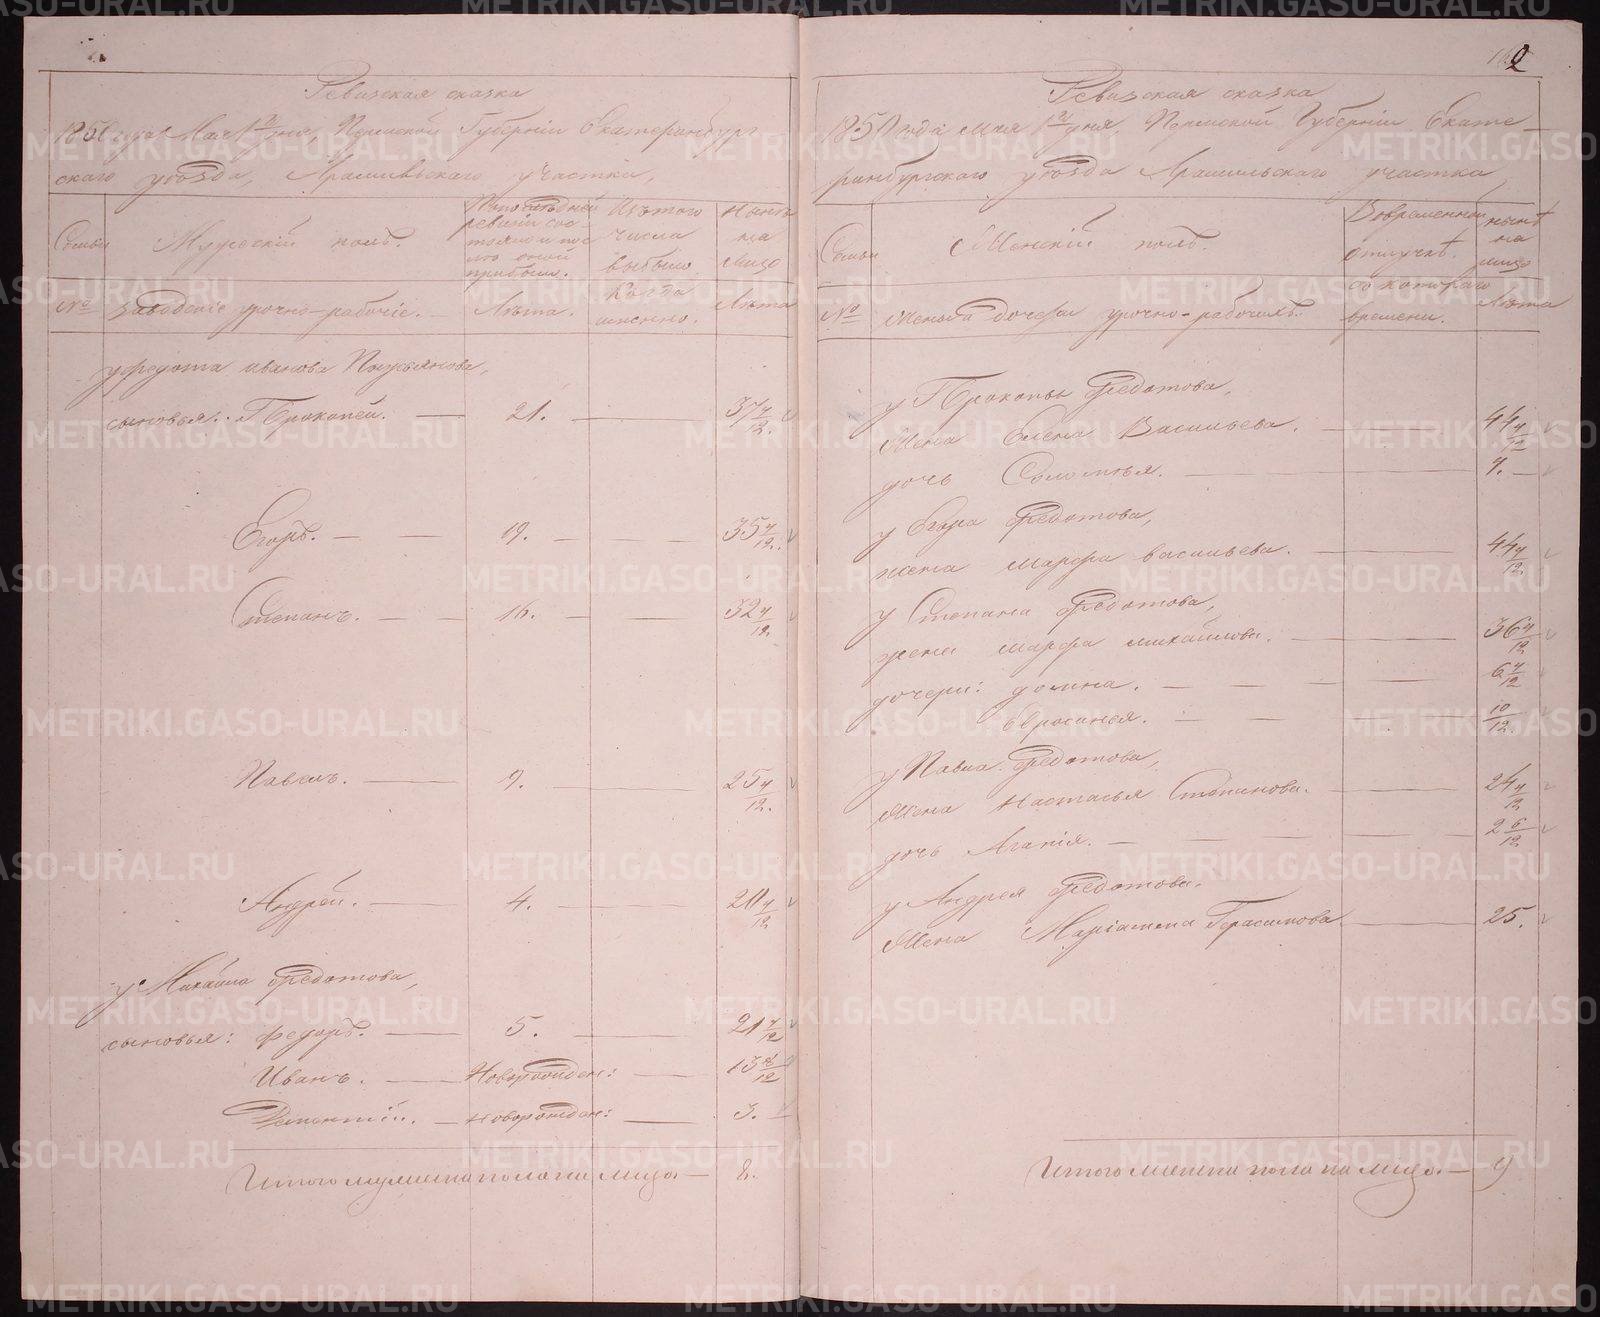 162
Ревизская сказка
1850 года Мая 1го дня, Пермской Губерніи Екатеринбург
скаго уѣзда, Арамильскаго участка,
Семьи
Мужескій полъ.
По последней
ревизіи сос-
тояло и пос
лѣ оной
прибыло.
Изъ того
числа
выбыло
Нынѣ
на
лицо
№
Заводскіе урочно-рабочіе.
Лѣта.
Когда
именно.
Лѣта
у Федота Иванова
сыновья: Прокопей. — 21. — 37 4/12.
Егоръ. — — 19. — — 35 4/12.
Степанъ. — — 16. — — 32 4/12.
Павелъ. — 9. — 25 4/12.
Андрей. — 4. — 20 4/12
у Михайла Федотова,
сыновья: Федоръ. — 5. — 21 4/12
Иванъ. — Новорожден: — 13
новорожден: — 3.
Итого мужеска пола на лицо — 8.
Ревизская сказка
1850 года мая 1го дня, Пермской Губерніи Екате-
ринбургскаго уѣзда Арамильскаго участка
Семьи
Женскій полъ.
Во временной
отлучкѣ
нынѣ
на
лицо
№
Жены и дочери урочно-рабочихъ.
съ котораго
времени.
Лѣта
у Прокопья Федотова,
Жена Елена Васильева. — 44 4/12
дочь Соломѣя. — 4. —
у Егора Федотова,
жена марфа васильева. — 44 4/12
у Степана Федотова,
жена марфа михайлова. — 36 4/12
дочери: домна. — — — 6 4/12
Евросинья. — — — 10/12.
у Павла Федотова,
Жена Настасья Степанова. — 24 4/12
дочь Агапія. — — — 2 6/12
у Андрея Федотова.
Жена Маріамена Герасимова — 25.
Итого женска пола на лицо. — 9
METRIKI.GASO-URAL.RU